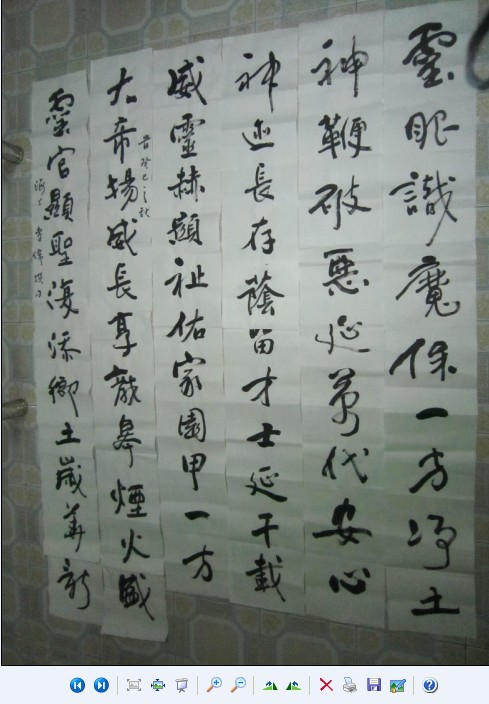 靈眼識魔保一方淨土
神鞭破惡延萬代安心
神迹長存蔭留才士延千載
威靈赫顯祉佑家園甲一方
大帝揚威長享皋煙火盛
癸巳之秋
靈官顯聖復添鄉土歲華新